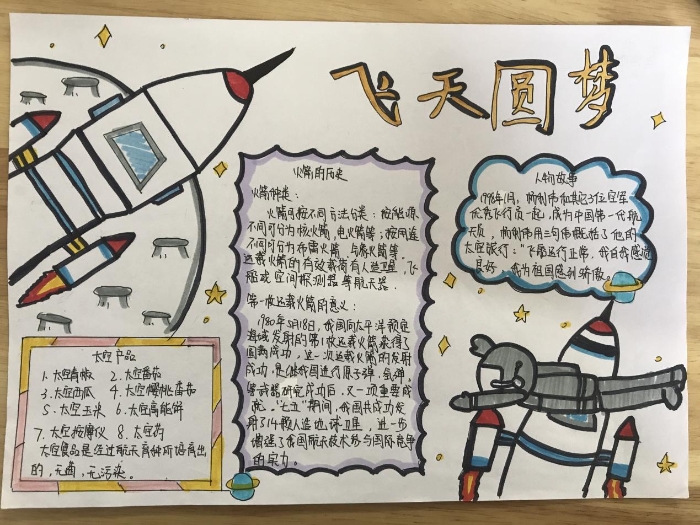 飞天圆梦
火箭的历史
火箭种类：
火箭可按不同方法分类：按能源
不同可分为核火箭，电火箭等；按用途
不同可分为布雷火箭、
运载火箭的有效载荷有人造卫星，飞
船或空间探测器等航天器.
第一枚运载火箭的意义：
1980年5月18日，我国向太平洋预定
海域发射的第1枚运载火箭获得了
圆满成功，这一次运载火箭的发射
成功，是继我国进行原子弹、氢弹，
等武器研究成功后，又一项重要成
就。"七五"期间，我国共成功发
射了14颗人造地球卫星，进一步
增强了我国航天技术参与国际竞争
的实力。
人物故事
1998年1月，杨利伟和其他13位空军
优秀飞行员一起，成为中国第一代航
天员，杨利伟用三句话概括了他的
太空旅行："飞船运行正常，我自我感觉
良好，我为祖国感到骄傲。
太空产品
1. 太空青椒 2. 太空番茄
3. 太空西瓜 4. 太空樱桃番茄
5. 太空玉米 6. 太空高能饼
7. 太空按摩仪 8. 太空药
太空食品是经过航天育种所培育出
的，无菌，无污染。